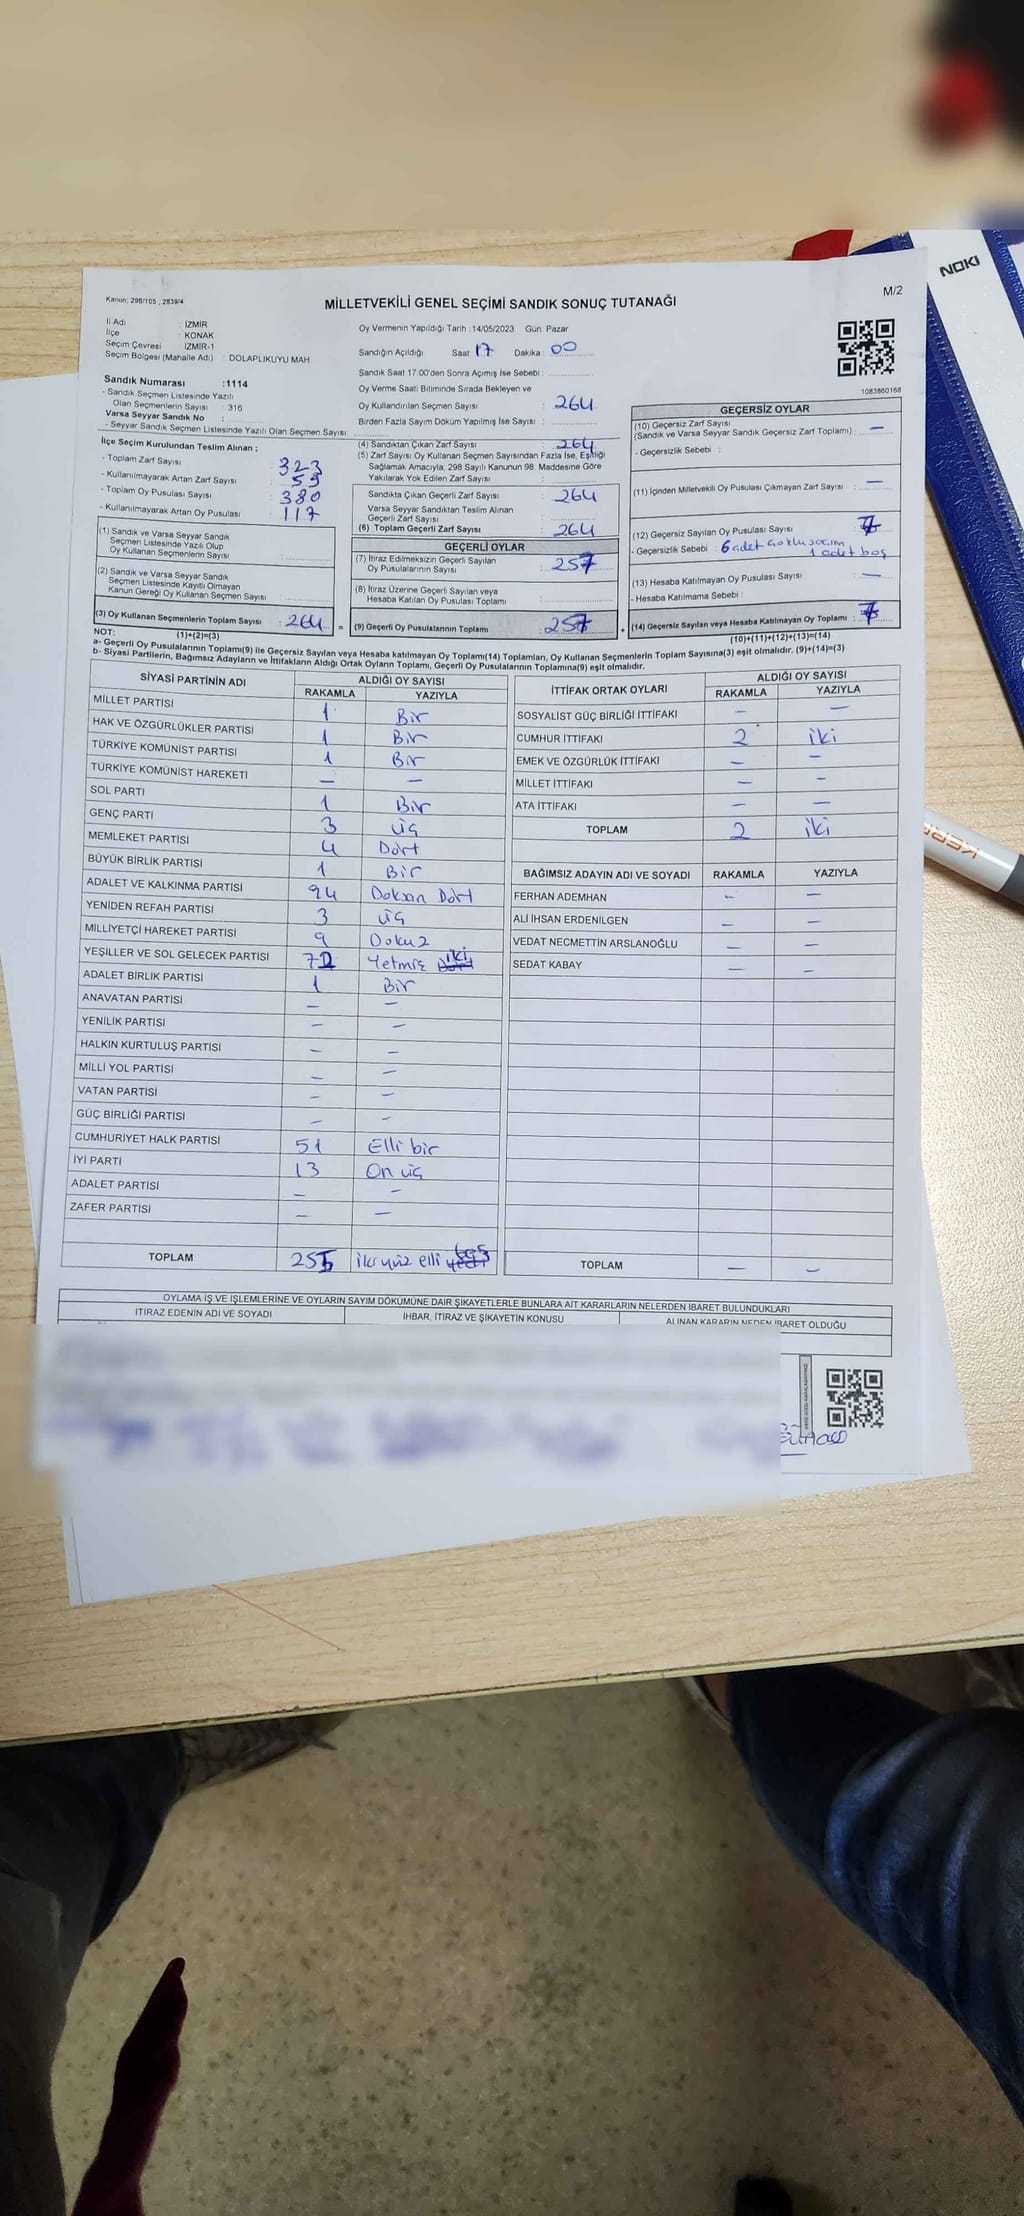 NOKI
Kanun: 298/105 , 2839/4
MİLLETVEKİLİ GENEL SEÇİMİ SANDIK SONUÇ TUTANAĞI
M/2
İl Adı : İZMİR
İlçe : KONAK
Seçim Çevresi : İZMİR-1
Seçim Bölgesi (Mahalle Adı) : DOLAPLIKUYU MAH
Oy Vermenin Yapıldığı Tarih :14/05/2023 Gün: Pazar
Sandığın Açıldığı Saat: 17 Dakika : 00
Sandık Saat 17:00'den Sonra Açımış İse Sebebi :
Oy Verme Saati Bitiminde Sırada Bekleyen ve
Oy Kullandırılan Seçmen Sayısı : 264
Birden Fazla Sayım Döküm Yapılmış İse Sayısı :
1083860168
Sandık Numarası :1114
- Sandık Seçmen Listesinde Yazılı
Olan Seçmenlerin Sayısı : 316
Varsa Seyyar Sandık No :
- Seyyar Sandık Seçmen Listesinde Yazılı Olan Seçmen Sayısı :
İlçe Seçim Kurulundan Teslim Alınan ;
- Toplam Zarf Sayısı : 323
- Kullanılmayarak Artan Zarf Sayısı : 59
- Toplam Oy Pusulası Sayısı : 380
- Kullanılmayarak Artan Oy Pusulası : 117
(1) Sandık ve Varsa Seyyar Sandık
Seçmen Listesinde Yazılı Olup
Oy Kullanan Seçmenlerin Sayısı :
(2) Sandık ve Varsa Seyyar Sandık
Seçmen Listesinde Kayıtlı Olmayan
Kanun Gereği Oy Kullanan Seçmen Sayısı :
(3) Oy Kullanan Seçmenlerin Toplam Sayısı : 264 =
(1)+(2)=(3)
(4) Sandıktan Çıkan Zarf Sayısı : 264
(5) Zarf Sayısı Oy Kullanan Seçmen Sayısından Fazla İse, Eşitliği
Sağlamak Amacıyla; 298 Sayılı Kanunun 98. Maddesine Göre
Yakılarak Yok Edilen Zarf Sayısı :
Sandıkta Çıkan Geçerli Zarf Sayısı : 264
Varsa Seyyar Sandıktan Teslim Alınan
Geçerli Zarf Sayısı :
(6) Toplam Geçerli Zarf Sayısı : 264
GEÇERLİ OYLAR
(7) İtiraz Edilmeksizin Geçerli Sayılan
Oy Pusulalarının Sayısı : 257
(8) İtiraz Üzerine Geçerli Sayılan veya
Hesaba Katılan Oy Pusulası Toplamı :
(9) Geçerli Oy Pusulalarının Toplamı : 257 +
GEÇERSİZ OYLAR
(10) Geçersiz Zarf Sayısı
(Sandık ve Varsa Seyyar Sandık Geçersiz Zarf Toplamı) : —
- Geçersizlik Sebebi :
(11) İçinden Milletvekili Oy Pusulası Çıkmayan Zarf Sayısı : —
(12) Geçersiz Sayılan Oy Pusulası Sayısı : 7
- Geçersizlik Sebebi : 6 adet çoklu seçim
1 adet boş
(13) Hesaba Katılmayan Oy Pusulası Sayısı : —
- Hesaba Katılmama Sebebi :
(14) Geçersiz Sayılan veya Hesaba Katılmayan Oy Toplamı : 7
(10)+(11)+(12)+(13)=(14)
NOT:
a- Geçerli Oy Pusulalarının Toplamı(9) ile Geçersiz Sayılan veya Hesaba katılmayan Oy Toplamı(14) Toplamları, Oy Kullanan Seçmenlerin Toplam Sayısına(3) eşit olmalıdır. (9)+(14)=(3)
b- Siyasi Partilerin, Bağımsız Adayların ve İttifakların Aldığı Ortak Oyların Toplamı, Geçerli Oy Pusulalarının Toplamına(9) eşit olmalıdır.
SİYASİ PARTİNİN ADI ALDIĞI OY SAYISI
RAKAMLA YAZIYLA
MİLLET PARTİSİ 1 Bir
HAK VE ÖZGÜRLÜKLER PARTİSİ 1 Bir
TÜRKİYE KOMÜNİST PARTİSİ 1 Bir
TÜRKİYE KOMÜNİST HAREKETİ — —
SOL PARTİ 1 Bir
GENÇ PARTİ 3 üç
MEMLEKET PARTİSİ 4 Dört
BÜYÜK BİRLİK PARTİSİ 1 Bir
ADALET VE KALKINMA PARTİSİ 94 Doksan Dört
YENİDEN REFAH PARTİSİ 3 üç
MİLLİYETÇİ HAREKET PARTİSİ 9 Dokuz
YEŞİLLER VE SOL GELECEK PARTİSİ 72 Yetmiş iki
ADALET BİRLİK PARTİSİ 1 Bir
ANAVATAN PARTİSİ — —
YENİLİK PARTİSİ — —
HALKIN KURTULUŞ PARTİSİ — —
MİLLİ YOL PARTİSİ — —
VATAN PARTİSİ — —
GÜÇ BİRLİĞİ PARTİSİ — —
CUMHURİYET HALK PARTİSİ 51 Elli bir
İYİ PARTİ 13 On üç
ADALET PARTİSİ — —
ZAFER PARTİSİ — —
TOPLAM 255 iki yüz elli beş
İTTİFAK ORTAK OYLARI ALDIĞI OY SAYISI
RAKAMLA YAZIYLA
SOSYALİST GÜÇ BİRLİĞİ İTTİFAKI — —
CUMHUR İTTİFAKI 2 iki
EMEK VE ÖZGÜRLÜK İTTİFAKI — —
MİLLET İTTİFAKI — —
ATA İTTİFAKI — —
TOPLAM 2 iki
BAĞIMSIZ ADAYIN ADI VE SOYADI RAKAMLA YAZIYLA
FERHAN ADEMHAN — —
ALİ İHSAN ERDENİLGEN — —
VEDAT NECMETTİN ARSLANOĞLU — —
SEDAT KABAY — —
TOPLAM — —
OYLAMA İŞ VE İŞLEMLERİNE VE OYLARIN SAYIM DÖKÜMÜNE DAİR ŞİKAYETLERLE BUNLARA AİT KARARLARIN NELERDEN İBARET BULUNDUKLARI
İTİRAZ EDENİN ADI VE SOYADI İHBAR, İTİRAZ VE ŞİKAYETİN KONUSU ALINAN KARARIN NEDEN İBARET OLDUĞU